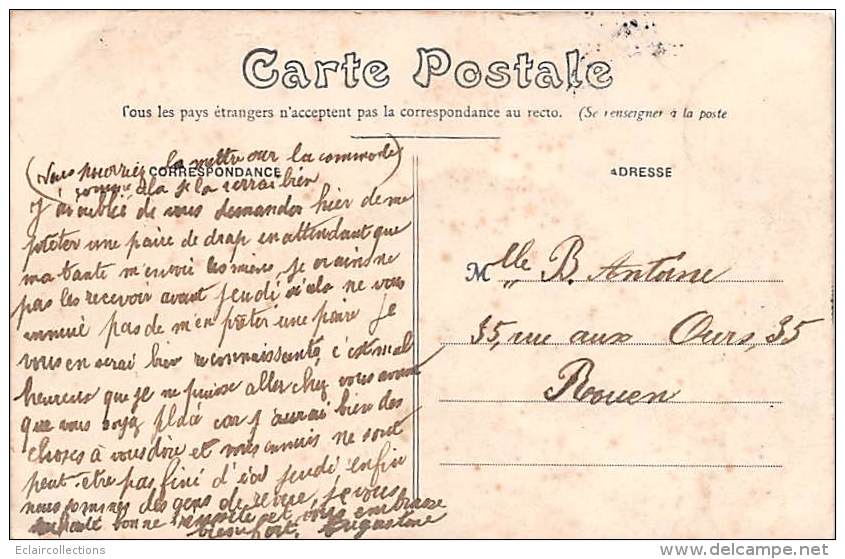 Carte Postale
Tous les pays étrangers n'acceptent pas la correspondance au recto. (Se renseigner à la poste
CORRESPONDANCE
ADRESSE
(Vous pourriez la mettre sur la commode
comme cela je la verrai bien)
J'ai oublié de vous demander hier de me
prêter une paire de drap en attendant que
ma tante m'envoi les miens, je crains ne
pas les recevoir avant jeudi si cela ne vous
ennuie pas de m'en prêter une paire je
vous en serai bien reconnaissante, c'est mal
heureux que je ne puisse aller chez vous avant
que vous soyez placé car j'aurai bien des
choses à vous dire et vous ennuis ne sont
peut-être pas fini d'ici jeudi enfin
nous sommes des gens de revue, je vous
souhaite bonne réussite et vous embrasse
bien fort. Augustine
Mlle B. Antoine
35, rue aux Ours, 35
Rouen
Eclaircollections
www.delcampe.net